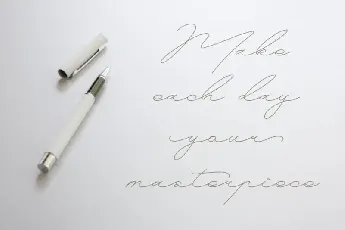 Make
each day
your
masterpiece